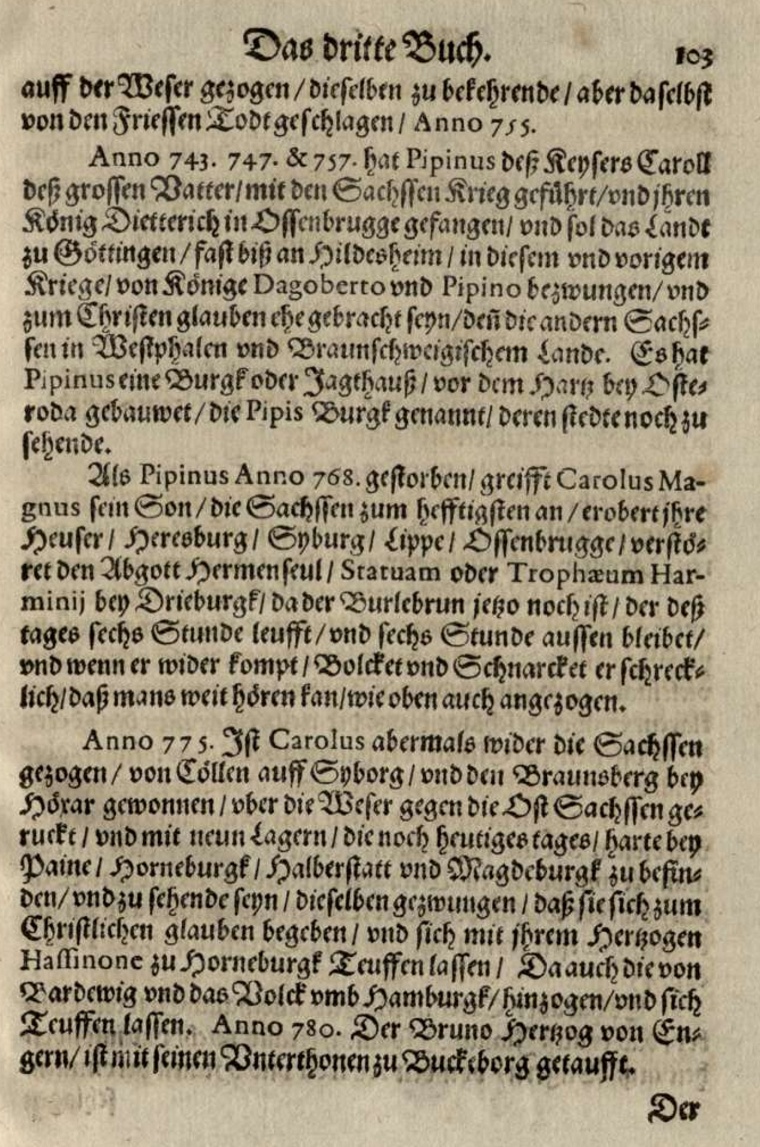 Das dritte Buch. 103
auff der Weser gezogen / dieselben zu bekehrende / aber daselbst
von den Friessen Todt geschlagen / Anno 755.
Anno 743. 747. & 757. hat Pipinus deß Keysers Caroll
deß grossen Vatter / mit den Sachssen Krieg geführt / vnd jhren
König Dietterich in Ossenbrugge gefangen / vnd sol das Landt
zu Göttingen / fast biß an Hildesheim / in diesem vnd vorigem
Kriege / von Könige Dagoberto vnd Pipino bezwungen / vnd
zum Christen glauben ehe gebracht seyn / deñ die andern Sachs⸗
sen in Westphalen vnd Braunschweigischem Lande. Es hat
Pipinus eine Burgk oder Jagthauß / vor dem Hartz bey Oste⸗
roda gebauwet / die Pipis Burgk genannt / deren stedte noch zu
sehende.
Als Pipinus Anno 768. gestorben / greifft Carolus Ma-
gnus sein Son / die Sachssen zum hefftigsten an / erobert jhre
Heuser / Heresburg / Syburg / Lippe / Ossenbrugge / verstö⸗
ret den Abgott Hermenseul / Statuam oder Trophæum Har-
minij bey Drieburgk / da der Burlebrun jetzo noch ist / der deß
tages sechs Stunde leufft / vnd sechs Stunde aussen bleibet /
vnd wenn er wider kompt / Bolcket vnd Schnarcket erschreck⸗
lich / daß mans weit hören kan / wie oben auch angezogen.
Anno 775. Ist Carolus abermals wider die Sachssen
gezogen / von Cöllen auff Syborg / vnd den Braunsberg bey
Höxar gewonnen / vber die Weser gegen die Ost Sachssen ge⸗
ruckt / vnd mit neun Lagern / die noch heutiges tages / harte bey
Paine / Horneburgk / Halberstatt vnd Magdeburgk zu befin⸗
den / vnd zu sehende seyn / dieselben gezwungen / daß sie sich zum
Christlichen glauben begeben / vnd sich mit jhrem Hertzogen
Hassinone zu Horneburgk Teuffen lassen / Da auch die von
Bardewig vnd das Volck vmb Hamburgk / hinzogen / vnd sich
Teuffen lassen. Anno 780. Der Bruno Hertzog von En⸗
gern / ist mit seinen Vnterthonen zu Buckeborg getaufft.
Der